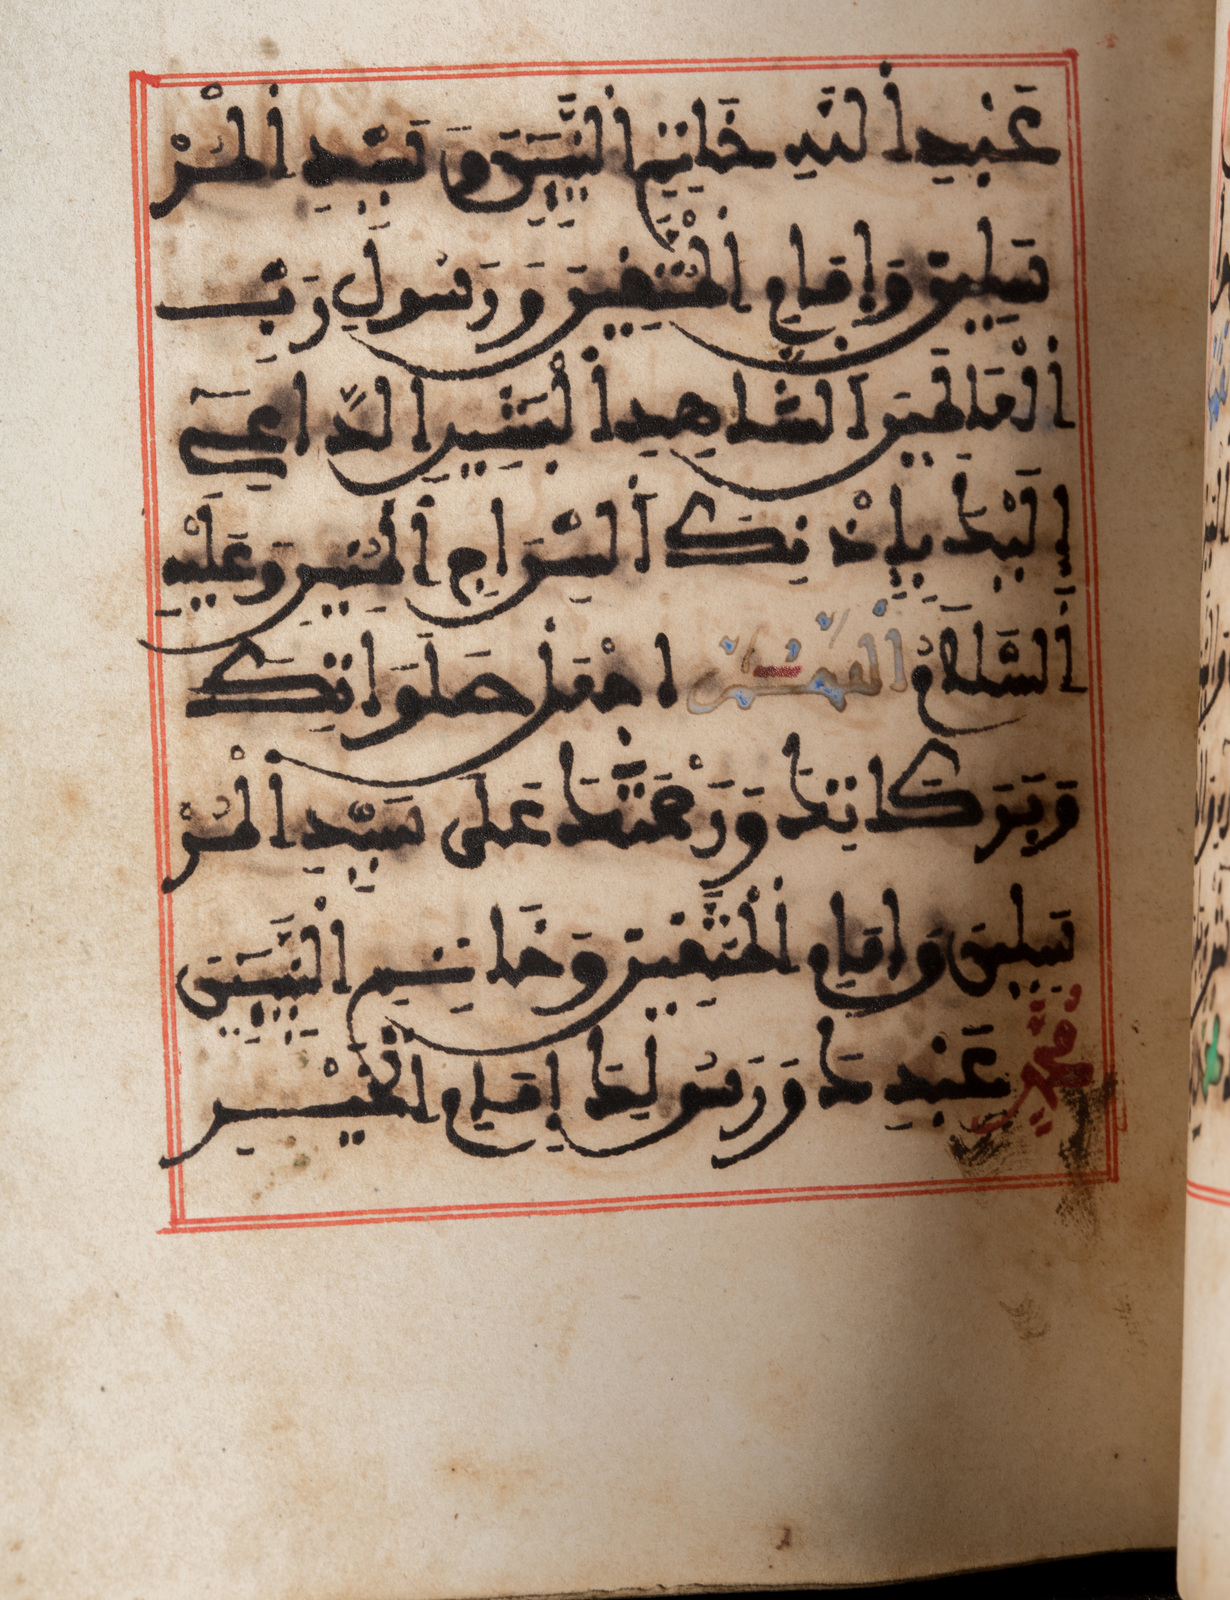 عَبْدِ اللَّهِ خَاتِمِ النَّبِيِّينَ وَسَيِّدِ الْمُرْ
سَلِينَ وَإِمَامِ الْمُتَّقِينَ وَرَسُولِ رَبِّ
الْعَالَمِينَ الشَّاهِدِ الْبَشِيرِ الدَّاعِي
إِلَيْكَ بِإِذْنِكَ السِّرَاجِ الْمُنِيرِ وَعَلَيْهِ
السَّلَامُ اللَّهُمَّ اجْعَلْ صَلَوَاتِكَ
وَبَرَكَاتِكَ وَرَحْمَتَكَ عَلَى سَيِّدِ الْمُرْ
سَلِينَ وَإِمَامِ الْمُتَّقِينَ وَخَاتِمِ النَّبِيِّينَ
مُحَمَّدٍ عَبْدِكَ وَرَسُولِكَ إِمَامِ الْخَيْرِ